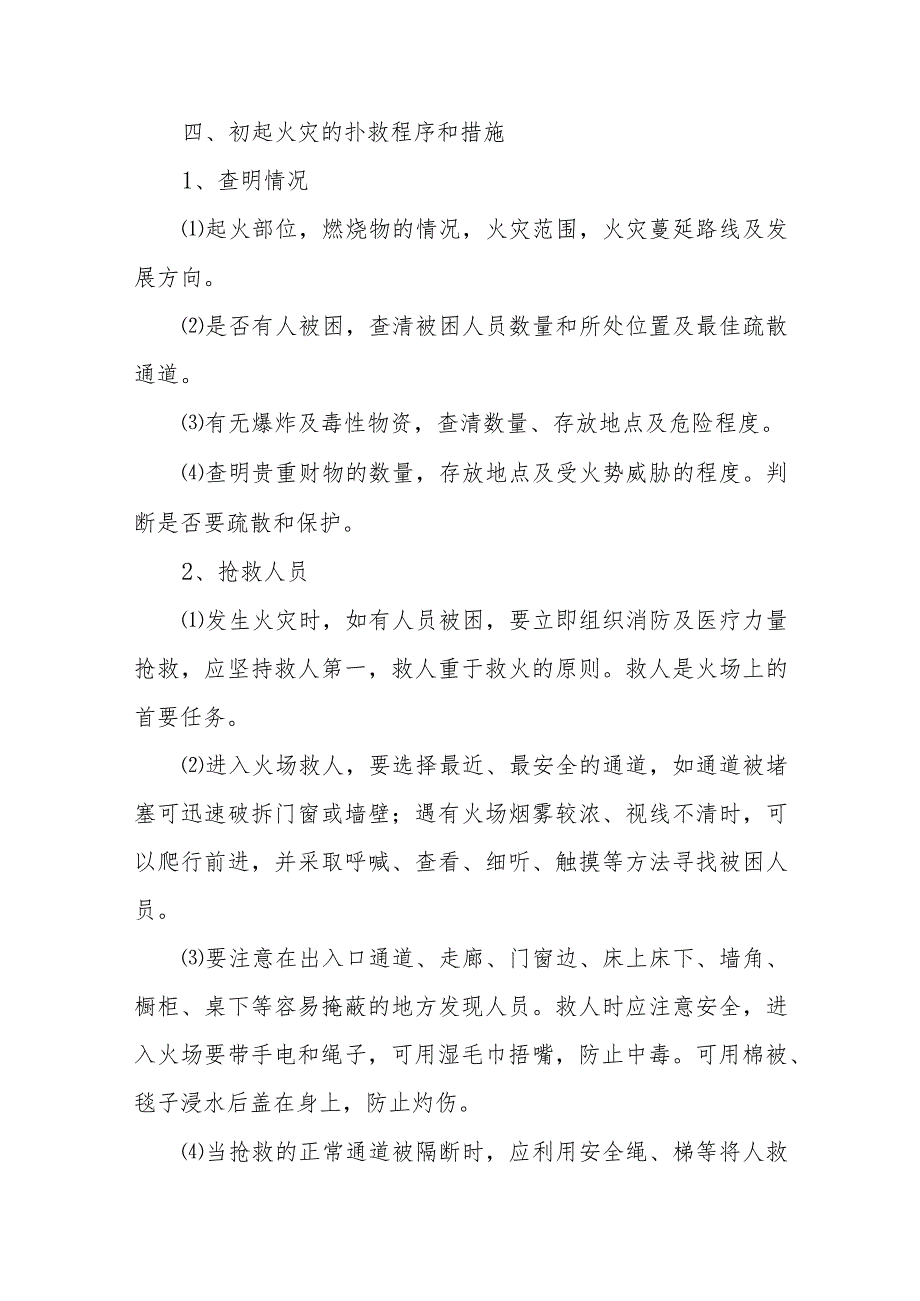 四、初起火灾的扑救程序和措施
1、查明情况
⑴起火部位，燃烧物的情况，火灾范围，火灾蔓延路线及发
展方向。
⑵是否有人被困，查清被困人员数量和所处位置及最佳疏散
通道。
⑶有无爆炸及毒性物资，查清数量、存放地点及危险程度。
⑷查明贵重财物的数量，存放地点及受火势威胁的程度。判
断是否要疏散和保护。
2、抢救人员
⑴发生火灾时，如有人员被困，要立即组织消防及医疗力量
抢救，应坚持救人第一，救人重于救火的原则。救人是火场上的
首要任务。
⑵进入火场救人，要选择最近、最安全的通道，如通道被堵
塞可迅速破拆门窗或墙壁；遇有火场烟雾较浓、视线不清时，可
以爬行前进，并采取呼喊、查看、细听、触摸等方法寻找被困人
员。
⑶要注意在出入口通道、走廊、门窗边、床上床下、墙角、
橱柜、桌下等容易掩蔽的地方发现人员。救人时应注意安全，进
入火场要带手电和绳子，可用湿毛巾捂嘴，防止中毒。可用棉被、
毯子浸水后盖在身上，防止灼伤。
⑷当抢救的正常通道被隔断时，应利用安全绳、梯等将人救